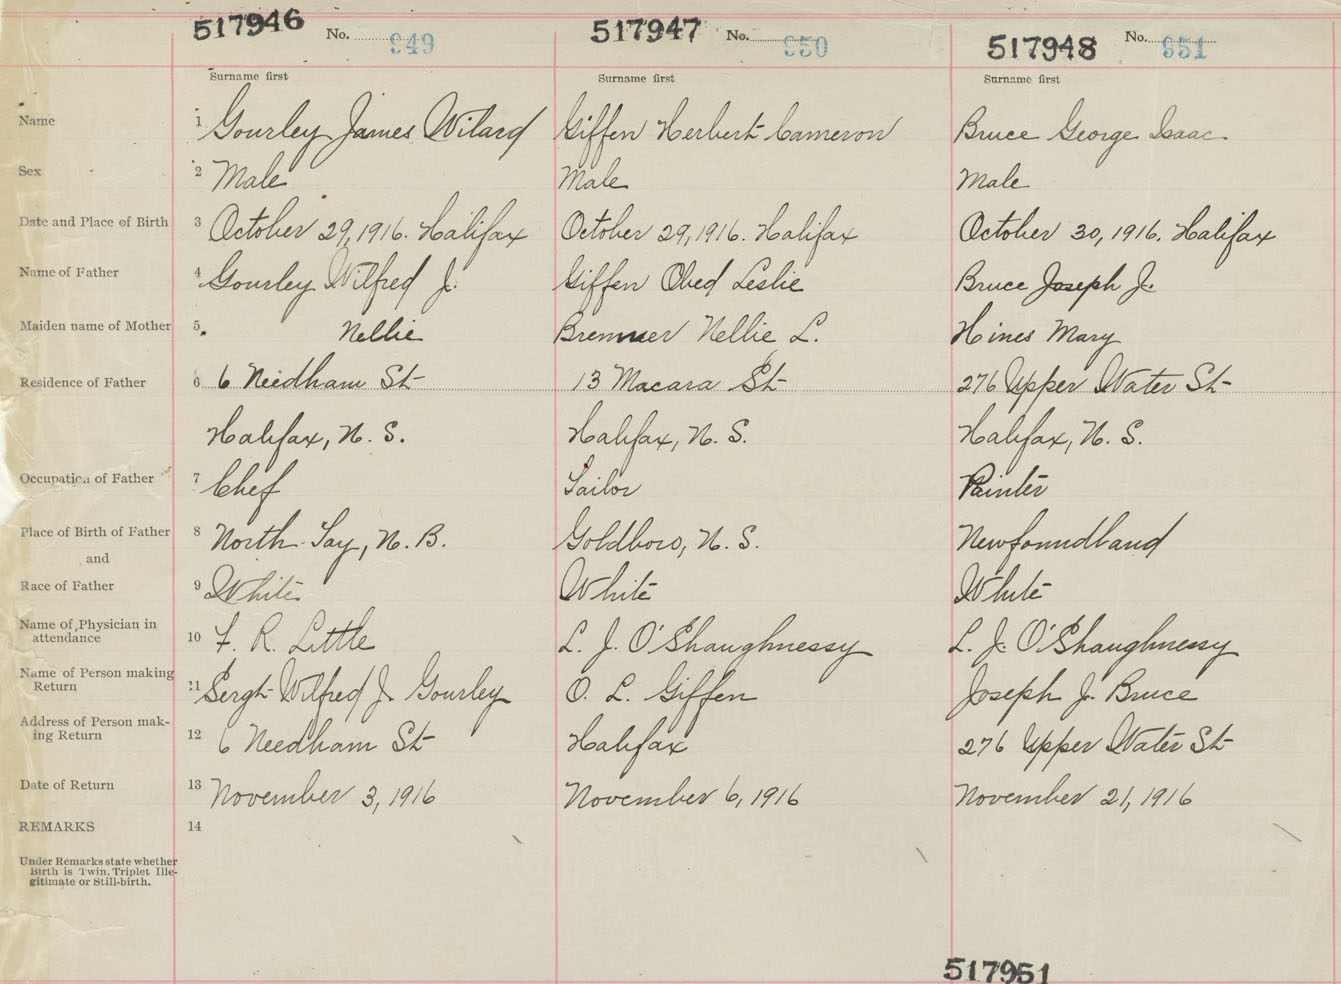 517946 No. 949 517947 No. 950 517948 No. 951
Surname first Surname first Surname first
Name 1 Gourley James Wilard Giffen Herbert Cameron Bruce George Isaac
Sex 2 Male Male Male
Date and Place of Birth 3 October 29, 1916. Halifax October 29, 1916. Halifax October 30, 1916. Halifax
Name of Father 4 Gourley Wilfred J. Giffen Obed Leslie Bruce Joseph J.
Maiden name of Mother 5 Nellie Brenner Nellie L. Hines Mary
Residence of Father 6 6 Needham St 13 Macara St 276 Upper Water St
Halifax, N. S. Halifax, N. S. Halifax, N. S.
Occupation of Father 7 Chef Tailor Painter
Place of Birth of Father 8 North Tay, N. B. Goldboro, N. S. Newfoundland
and
Race of Father 9 White White White
Name of Physician in
attendance 10 F. R. Little L. J. O'Shaughnessy L. J. O'Shaughnessy
Name of Person making
Return 11 Sergt Wilfred J. Gourley O. L. Giffen Joseph J. Bruce
Address of Person mak-
ing Return 12 6 Needham St Halifax 276 Upper Water St
Date of Return 13 November 3, 1916 November 6, 1916 November 21, 1916
REMARKS 14
Under Remarks state whether
Birth is Twin. Triplet Ille-
gitimate or Still-birth.
517951